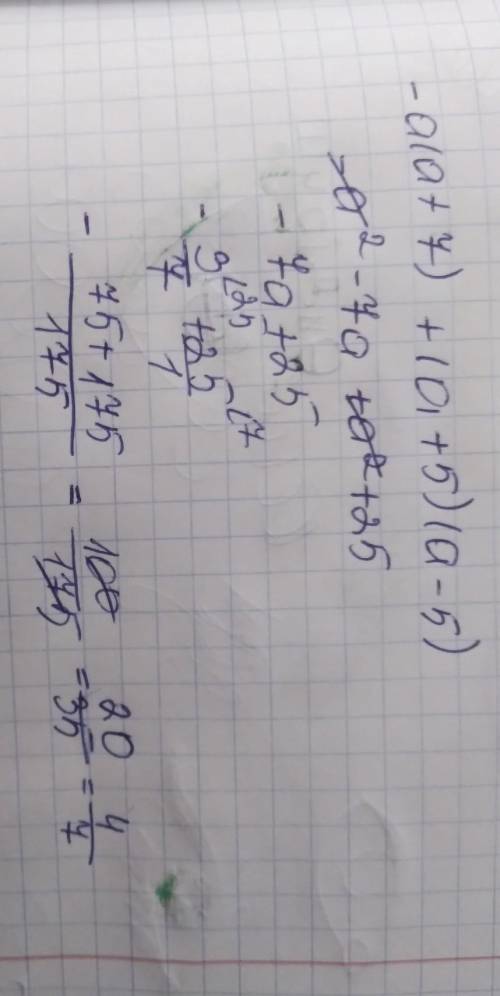 -a(a+7) + (a+5)(a-5)
-a² - 7a + a² + 25
- 7a + 25
- 3/7 + 25/1
- 75+175/175 = 100/175 = 20/35 = 4/7